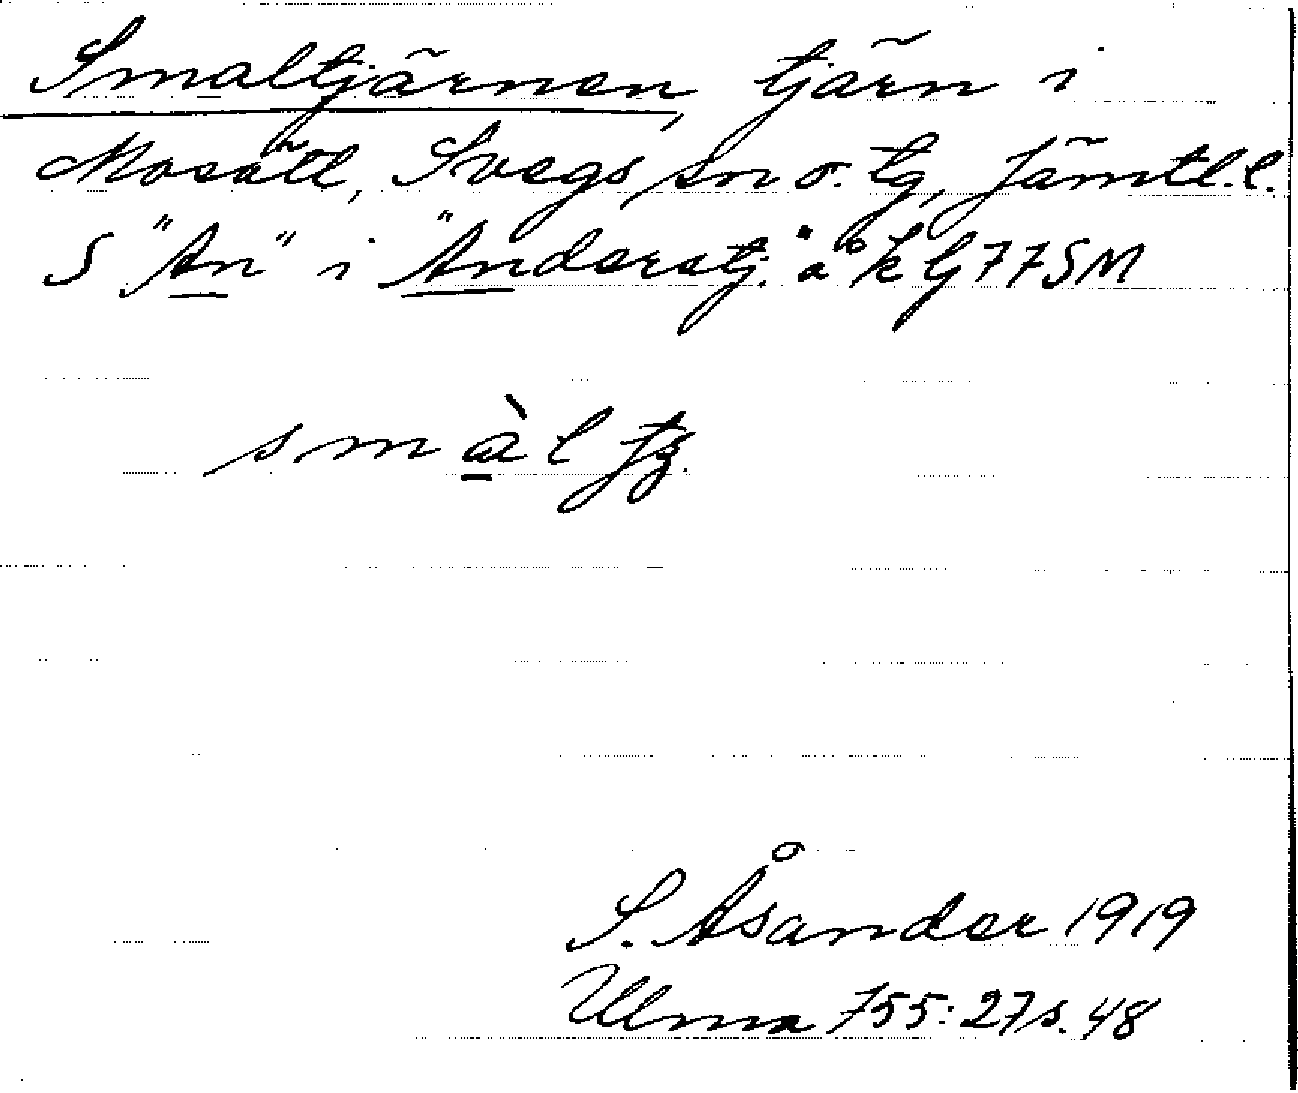 Smaltjärnen, tjärn i
Mosätt, Svegs sn o. tg, Jämtl. l.
S "An" i "Anderstj." å kbl 77SM
smàl tj.
S. Åsander 1919
Ulma 755:27 s. 48